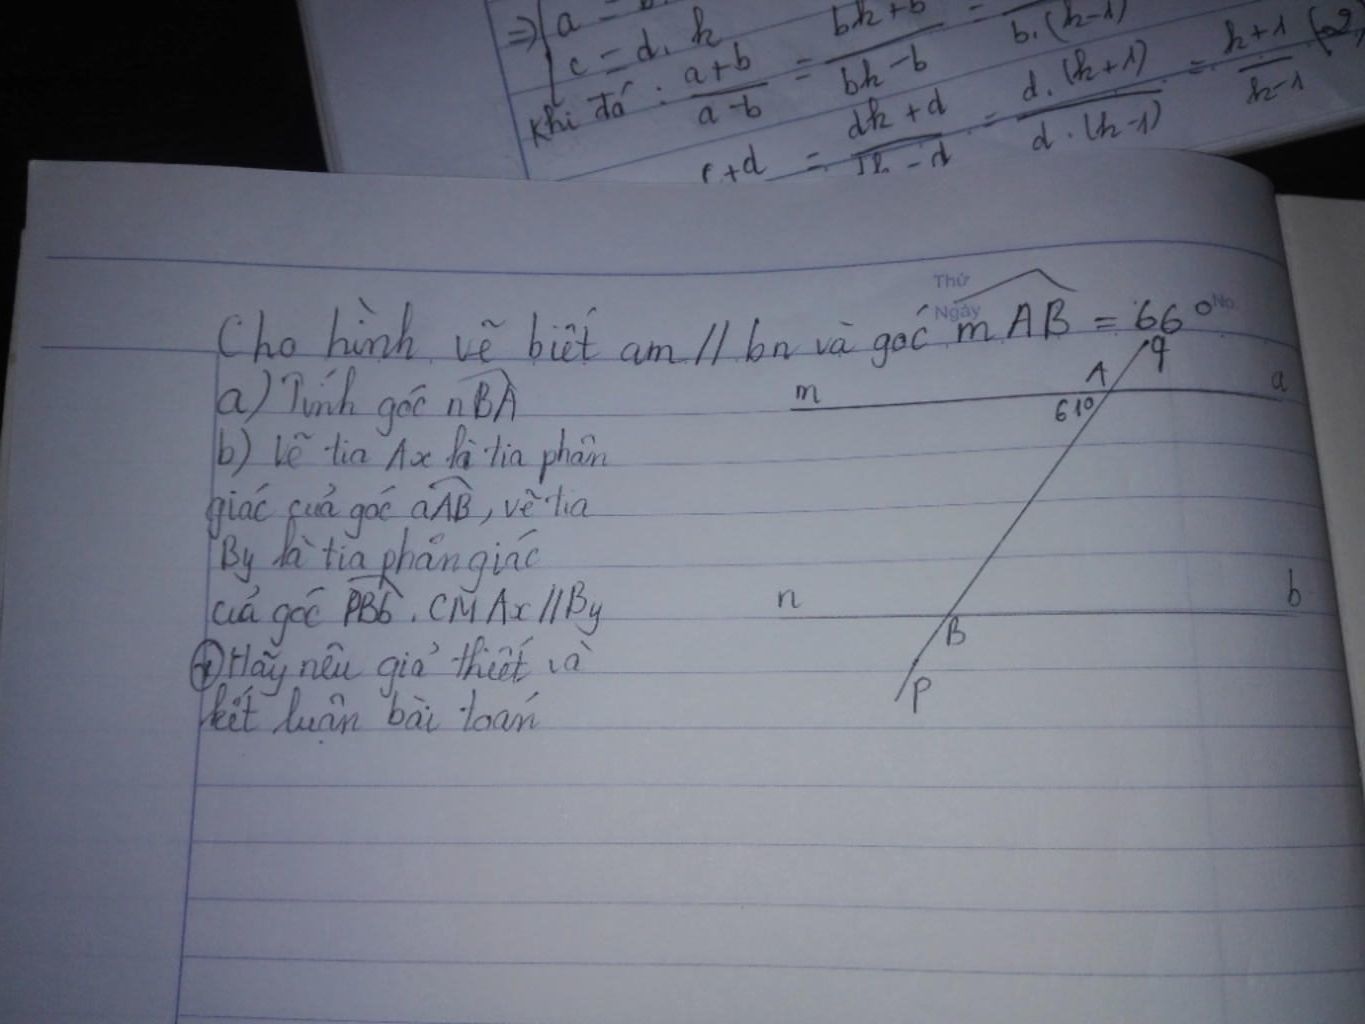 => a =
c = d. k
Khi đó : a+b / a-b = bk+b / bk-b = b.(k-1)
c+d = dk+d / - d = d.(k+1) / d.(k-1) = k+1 / k-1 (2)
Thứ
Ngày No.
Cho hình vẽ biết am // bn và góc mAB = 66°
a) Tính góc nBA
b) Vẽ tia Ax là tia phân
giác của góc aAB, vẽ tia
By là tia phân giác
của góc PBb. CM Ax//By
+ Hãy nêu giả thiết và
kết luận bài toán
q
m A a
61°
n b
B
P